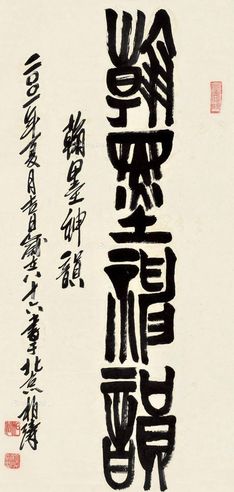 翰墨神韻
翰墨神韻
二〇〇一年夏月吉日歲六八十六書于北京柏濤